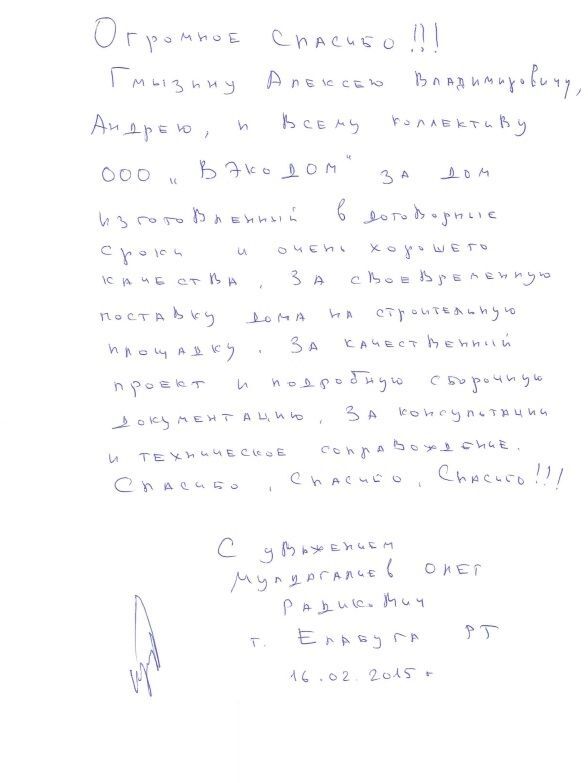 Огромное Спасибо!!!
Гмызину Алексею Владимировичу,
Андрею, и всему коллективу
ООО „ВЭКОДОМ“ за дом
изготовленный в договорные
сроки и очень хорошего
качества. За своевременную
поставку дома на строительную
площадку. За качественный
проект и подробную сборочную
документацию, за консультации
и техническое сопровождение.
Спасибо, Спасибо, Спасибо!!!
С уважением
Мулдагалиев Олег
Радикович
г. Елабуга РТ
16.02.2015 г